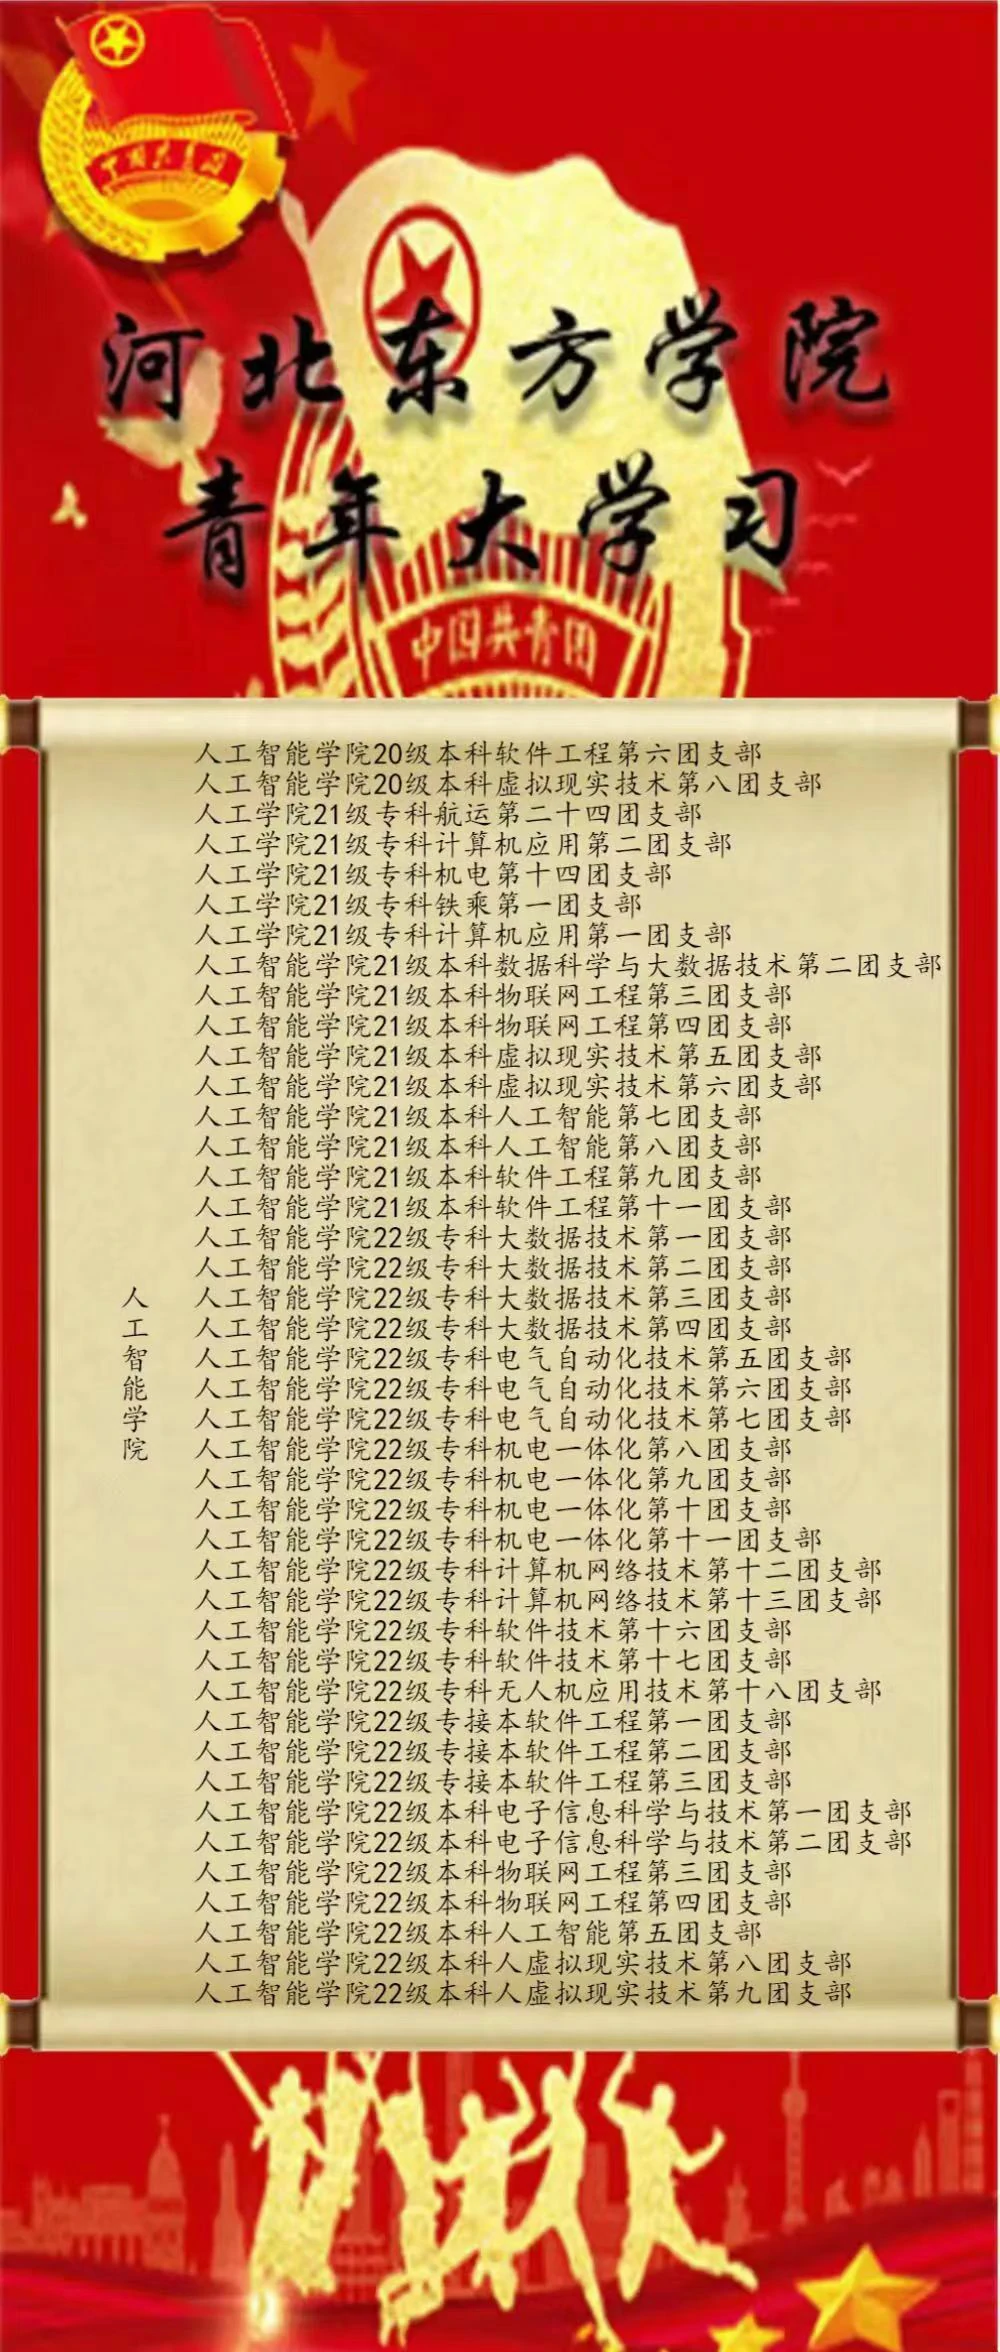 中国共青团
河北东方学院
青年大学习
中国共青团
人工智能学院
人工智能学院20级本科软件工程第六团支部
人工智能学院20级本科虚拟现实技术第八团支部
人工学院21级专科航运第二十四团支部
人工学院21级专科计算机应用第二团支部
人工学院21级专科机电第十四团支部
人工学院21级专科铁乘第一团支部
人工学院21级专科计算机应用第一团支部
人工智能学院21级本科数据科学与大数据技术第二团支部
人工智能学院21级本科物联网工程第三团支部
人工智能学院21级本科物联网工程第四团支部
人工智能学院21级本科虚拟现实技术第五团支部
人工智能学院21级本科虚拟现实技术第六团支部
人工智能学院21级本科人工智能第七团支部
人工智能学院21级本科人工智能第八团支部
人工智能学院21级本科软件工程第九团支部
人工智能学院21级本科软件工程第十一团支部
人工智能学院22级专科大数据技术第一团支部
人工智能学院22级专科大数据技术第二团支部
人工智能学院22级专科大数据技术第三团支部
人工智能学院22级专科大数据技术第四团支部
人工智能学院22级专科电气自动化技术第五团支部
人工智能学院22级专科电气自动化技术第六团支部
人工智能学院22级专科电气自动化技术第七团支部
人工智能学院22级专科机电一体化第八团支部
人工智能学院22级专科机电一体化第九团支部
人工智能学院22级专科机电一体化第十团支部
人工智能学院22级专科机电一体化第十一团支部
人工智能学院22级专科计算机网络技术第十二团支部
人工智能学院22级专科计算机网络技术第十三团支部
人工智能学院22级专科软件技术第十六团支部
人工智能学院22级专科软件技术第十七团支部
人工智能学院22级专科无人机应用技术第十八团支部
人工智能学院22级专接本软件工程第一团支部
人工智能学院22级专接本软件工程第二团支部
人工智能学院22级专接本软件工程第三团支部
人工智能学院22级本科电子信息科学与技术第一团支部
人工智能学院22级本科电子信息科学与技术第二团支部
人工智能学院22级本科物联网工程第三团支部
人工智能学院22级本科物联网工程第四团支部
人工智能学院22级本科人工智能第五团支部
人工智能学院22级本科人虚拟现实技术第八团支部
人工智能学院22级本科人虚拟现实技术第九团支部